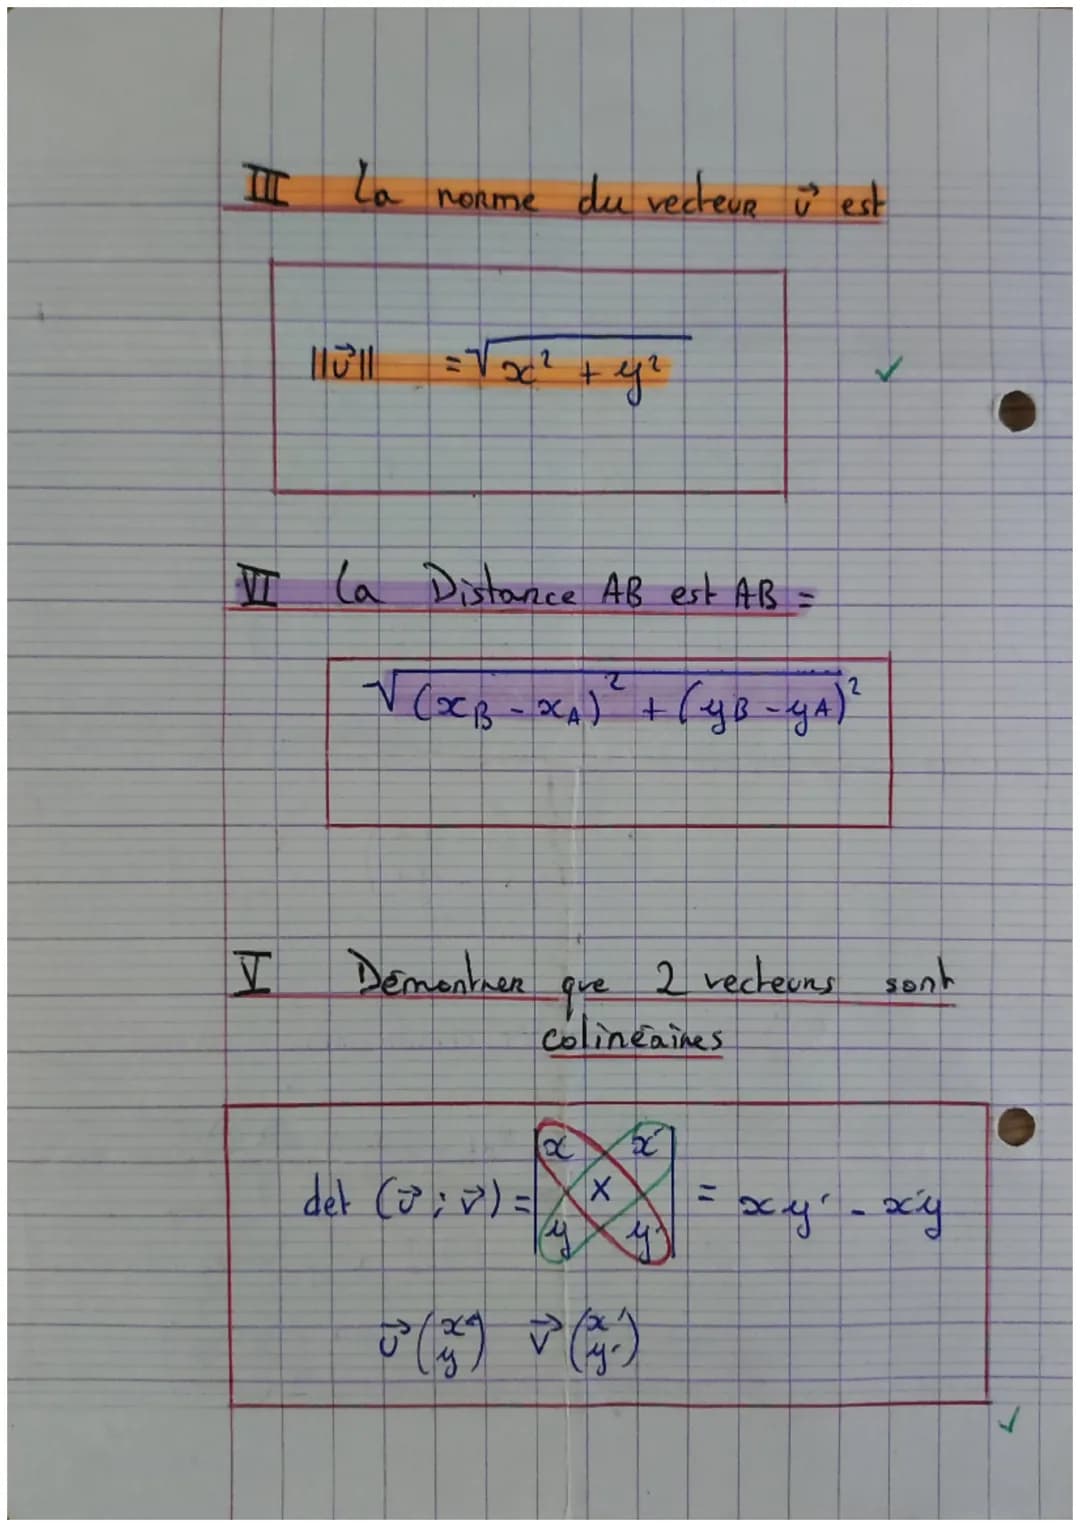 III La norme du vecteur u⃗ est
||u⃗|| = √x² + y²
VI La Distance AB est AB =
√(xB - xA)² + (yB - yA)²
V Démontrer que 2 vecteurs sont
colinéaires
det (u⃗ ; v⃗) = |x x'| = xy' - x'y
x
|y y'|
u⃗ (x y) v⃗ (x' y')